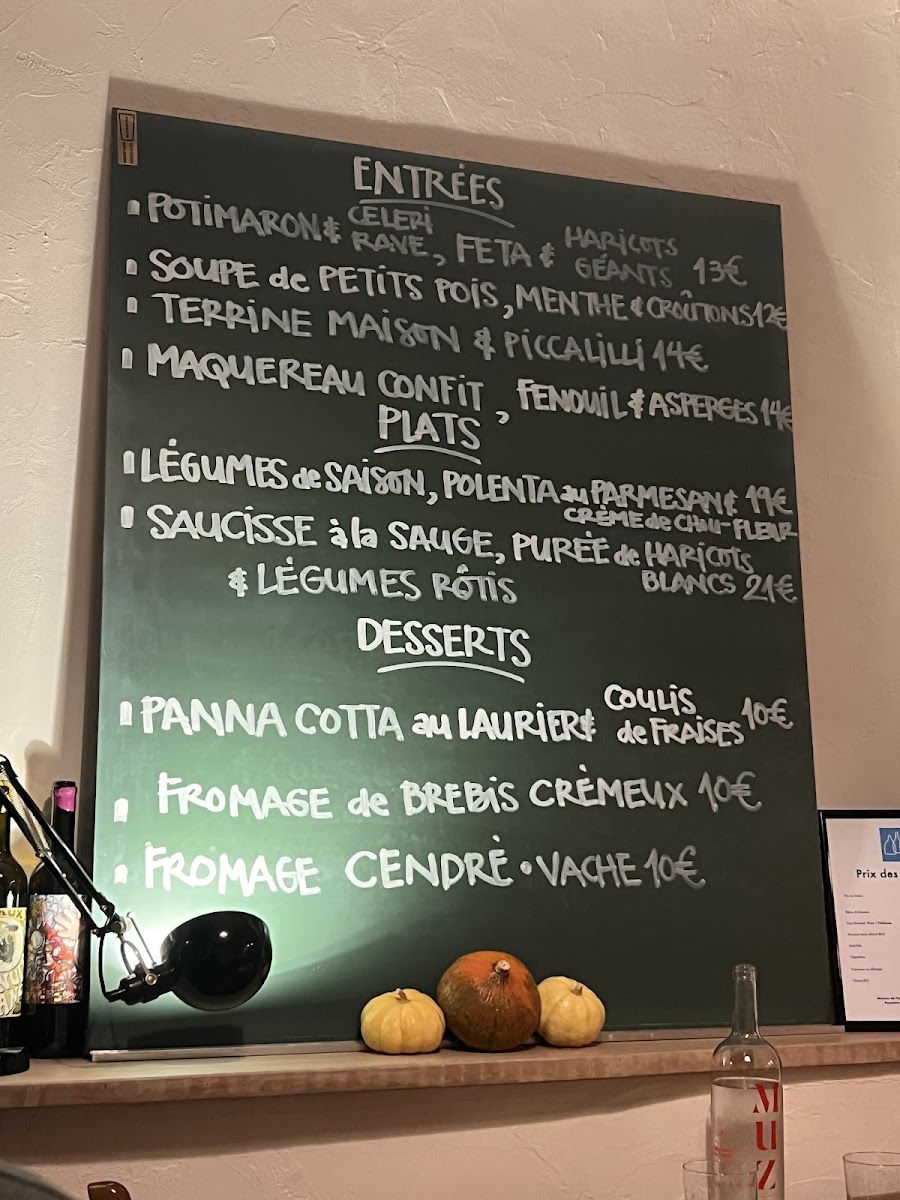 ENTRÉES
POTIMARON & CELERI RAVE, FETA & HARICOTS GÉANTS 13€
SOUPE de PETITS POIS, MENTHE & CROÛTONS 12€
TERRINE MAISON & PICCALILLI 14€
MAQUEREAU CONFIT, FENOUIL & ASPERGES 14€
PLATS
LÉGUMES de SAISON, POLENTA au PARMESAN & 19€
CRÈME de CHOU-FLEUR
SAUCISSE à la SAUGE, PURÉE de HARICOTS
BLANCS 21€
& LÉGUMES RÔTIS
DESSERTS
PANNA COTTA au LAURIER & COULIS de FRAISES 10€
FROMAGE de BREBIS CRÈMEUX 10€
FROMAGE CENDRÈ • VACHE 10€
Prix des
MUZ